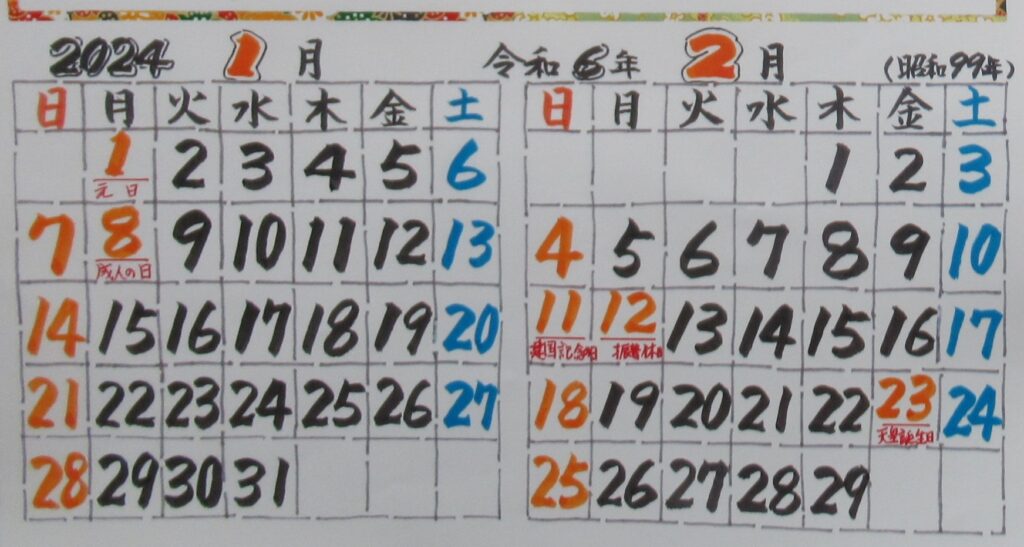 2024 1月
日 月 火 水 木 金 土
1 2 3 4 5 6
元日
7 8 9 10 11 12 13
成人の日
14 15 16 17 18 19 20
21 22 23 24 25 26 27
28 29 30 31
令和6年 2月 (昭和99年)
日 月 火 水 木 金 土
1 2 3
4 5 6 7 8 9 10
11 12 13 14 15 16 17
建国記念の日 振替休日
18 19 20 21 22 23 24
天皇誕生日
25 26 27 28 29